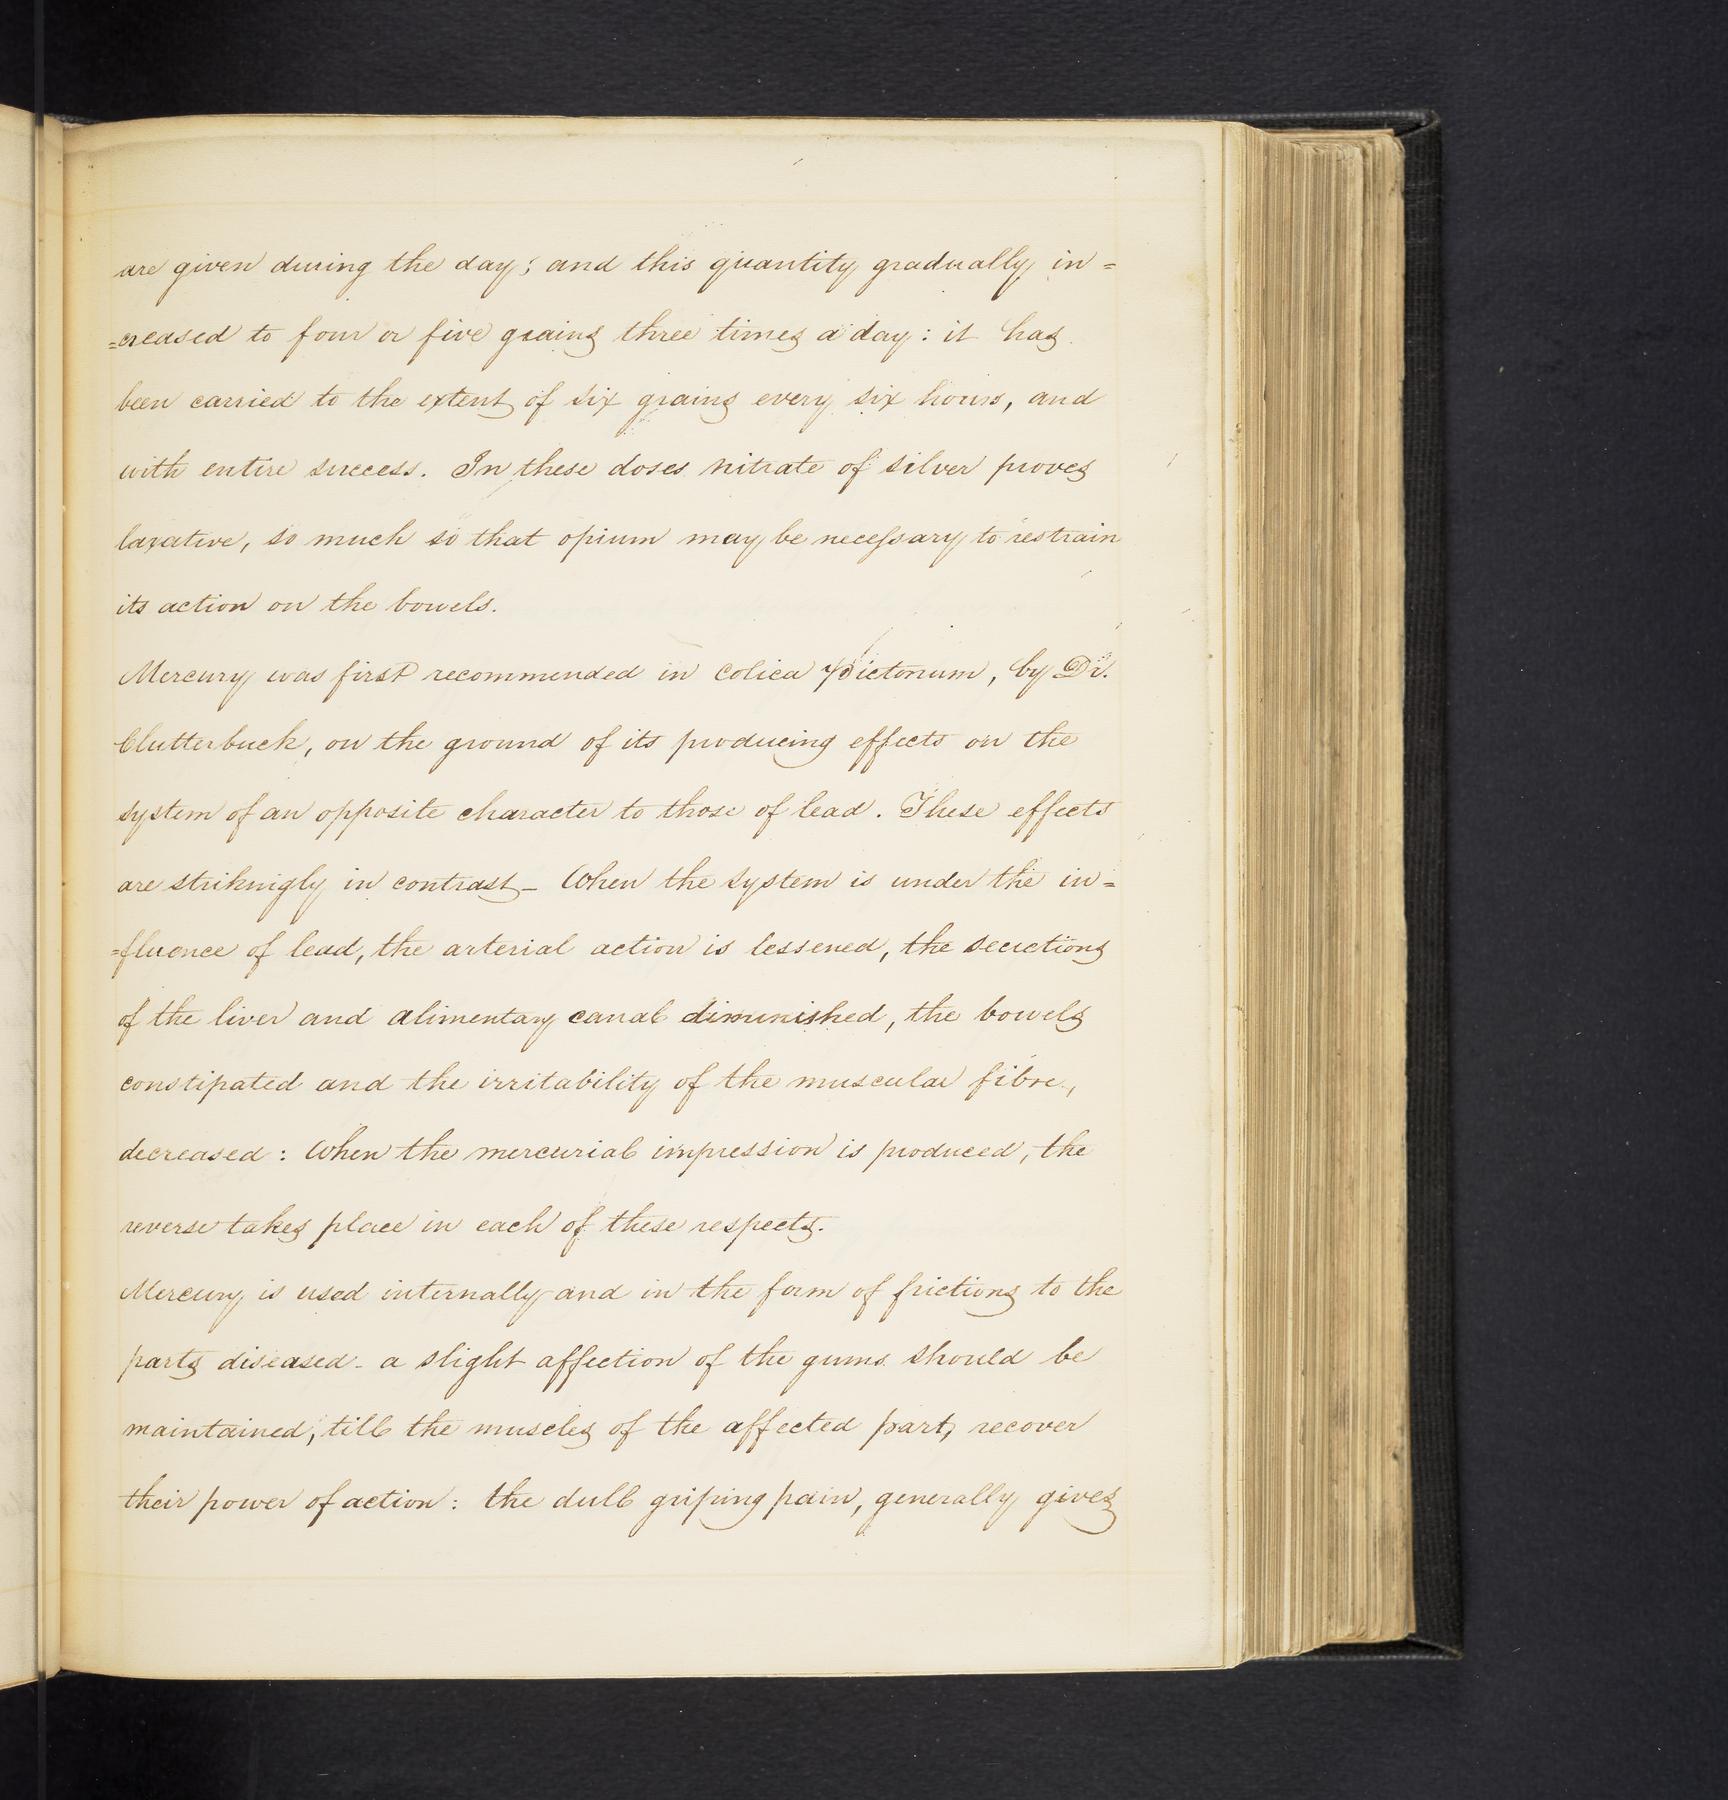 are given during the day; and this quantity gradually in=
=creased to four or five grains three times a day: it has
been carried to the extent of six grains every six hours, and
with entire success. In these doses nitrate of silver proves
laxative, so much so that opium may be necessary to restrain
its action on the bowels.
Mercury was first recommended in Colica Pictonum, by Dr.
Clutterbuck, on the ground of its producing effects on the
system of an opposite character to those of lead. These effects
are striknigly in contrast_ When the system is under the in=
=fluence of lead, the arterial action is lessened, the secretions
of the liver and alimentary canal diminished, the bowels
constipated and the irritability of the muscular fibre,
decreased: When the mercurial impression is produced, the
reverse takes place in each of these respects.
Mercury is used internally and in the form of frictions to the
parts diseased - a slight affection of the gums should be
maintained, till the muscles of the affected part, recover
their power of action: the dull griping pain, generally gives